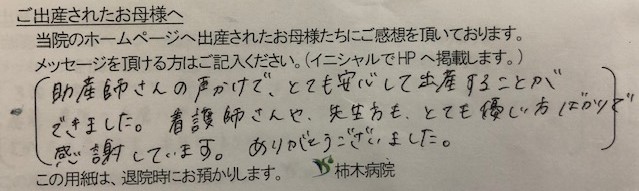 ご出産されたお母様へ
当院のホームページへ出産されたお母様たちにご感想を頂いております。
メッセージを頂ける方はご記入ください。(イニシャルでHPへ掲載します。)
助産師さんの声かけで、とても安心して出産することが
できました。看護師さんや、先生方も、とても優しい方ばかりで
感謝しています。ありがとうございました。
この用紙は、退院時にお預かりします。 柿木病院